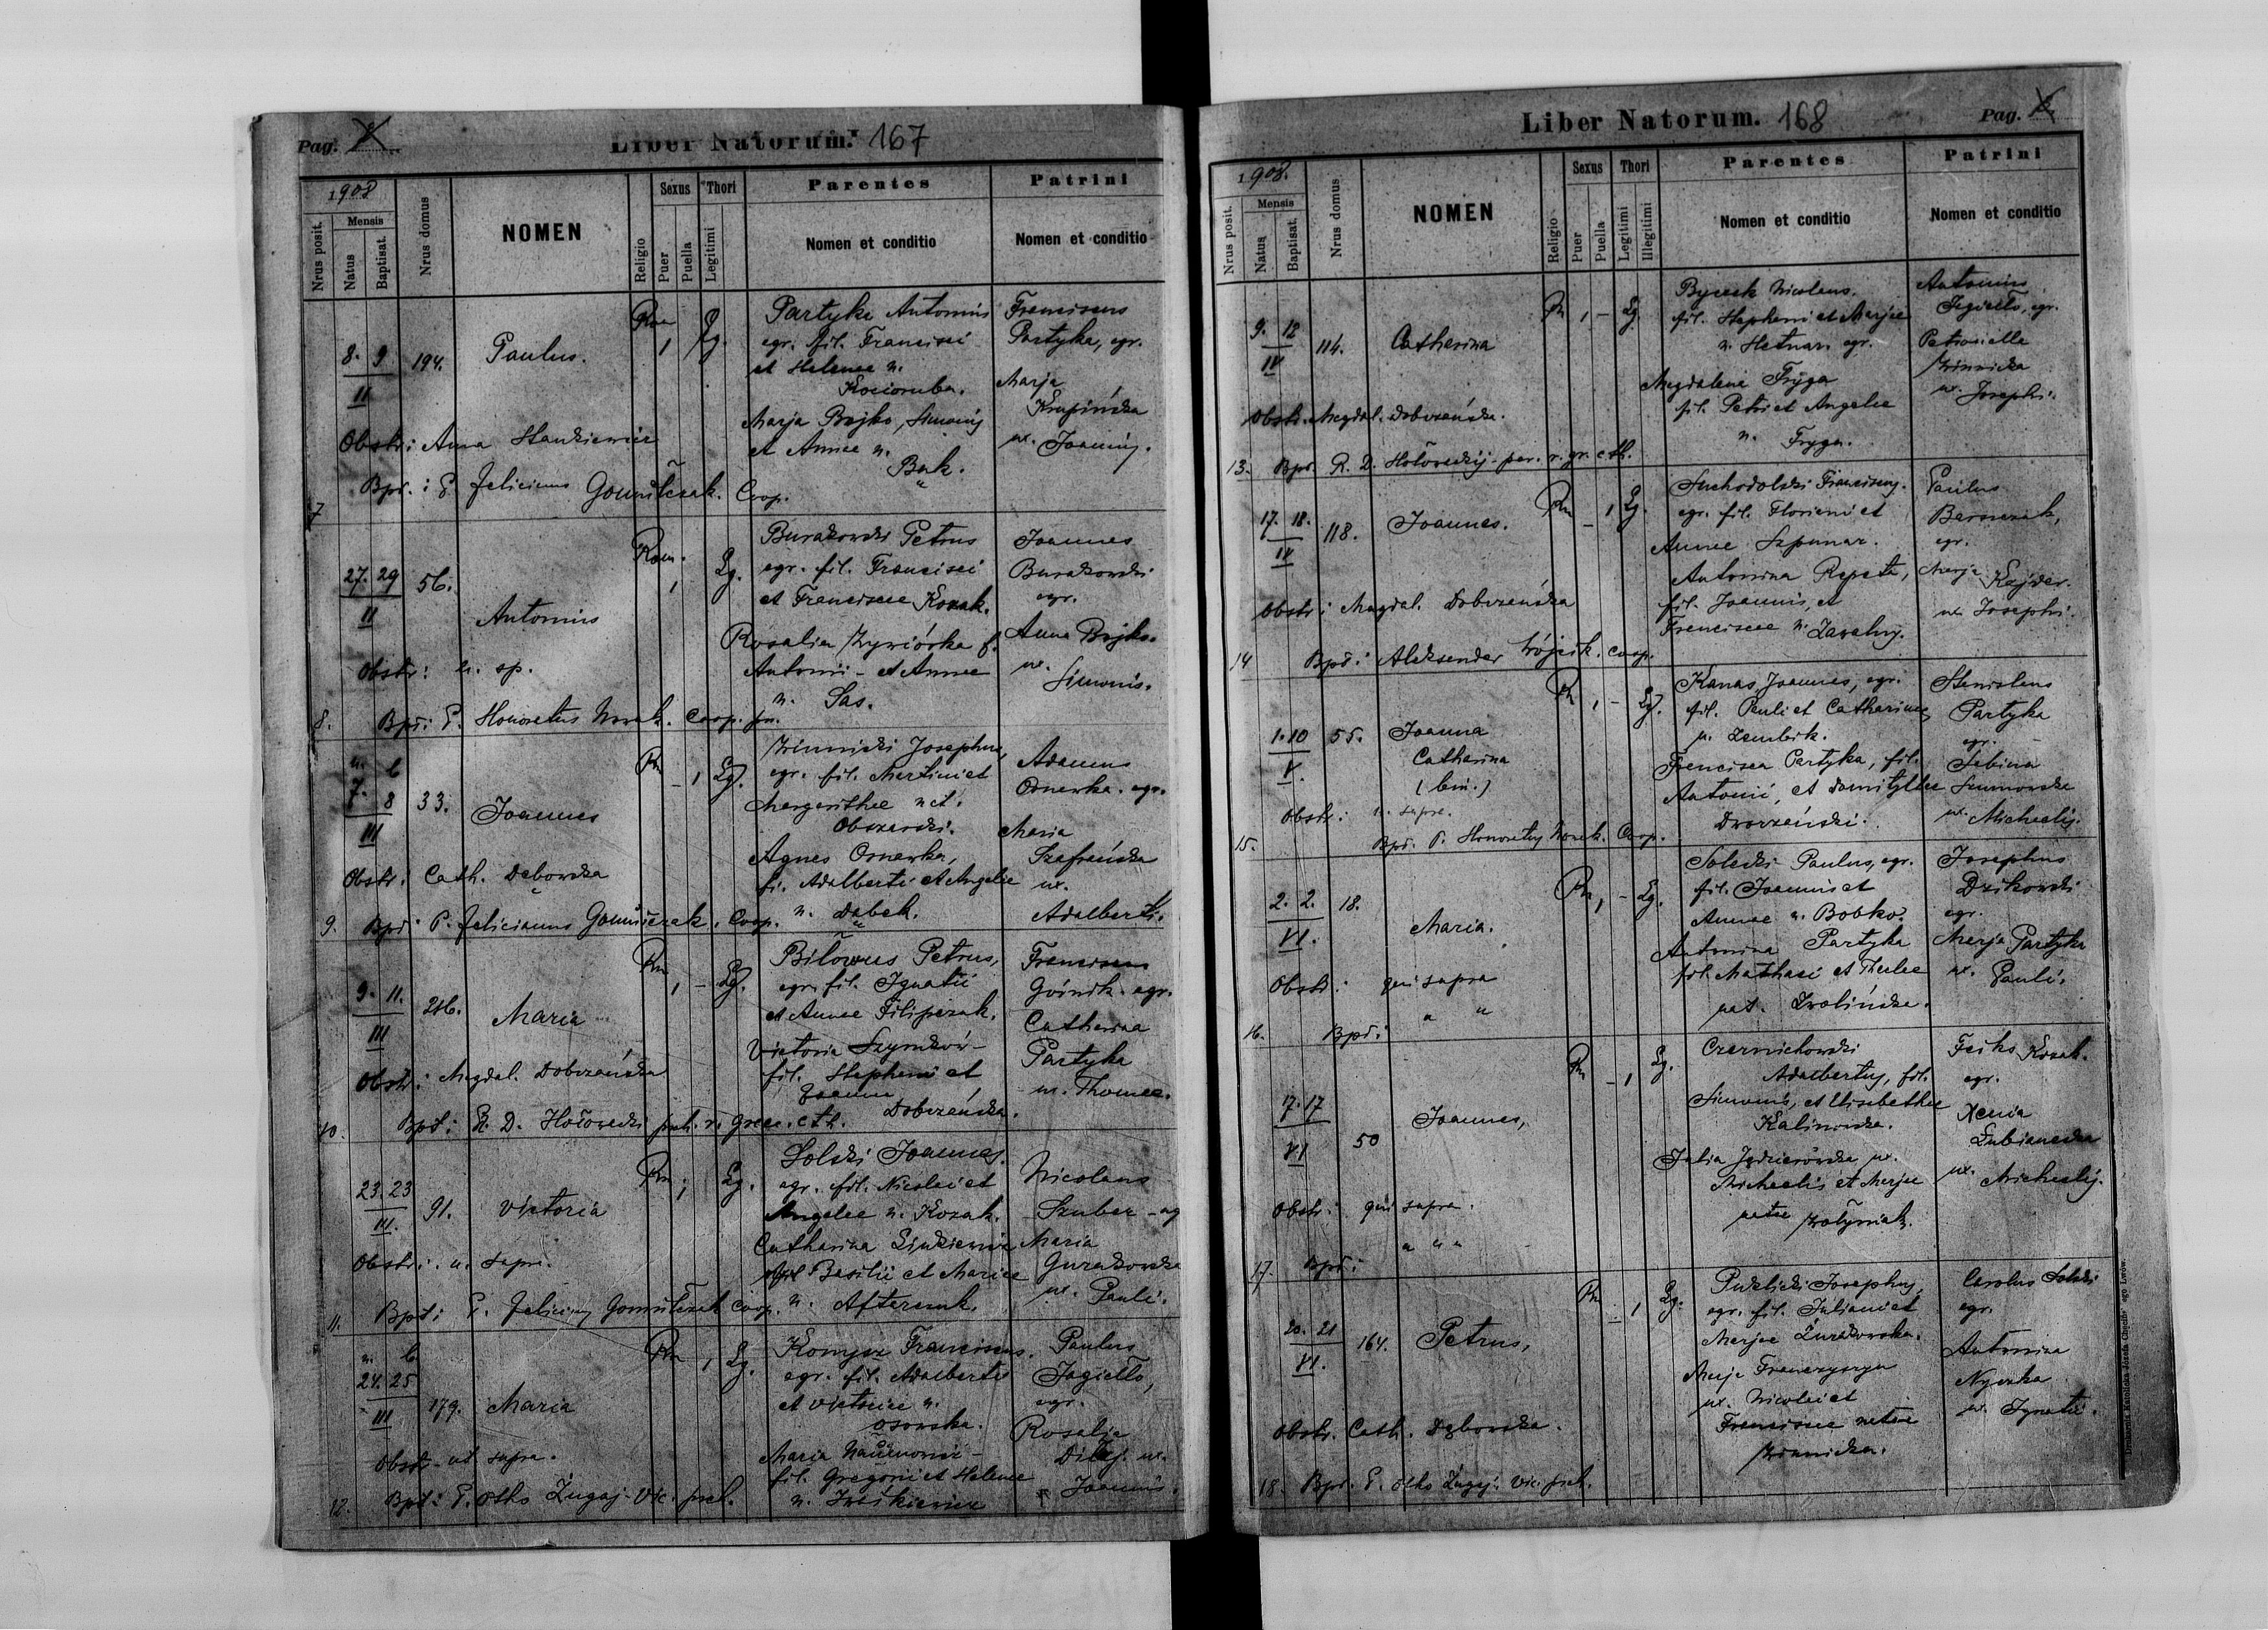 Pag.
Liber Natorum. 167
1908
Nrus posit.
Mensis
Natus
Baptisat.
Nrus domus
NOMEN
Religio
Sexus
Puer
Puella
Thori
Legitimi
Parentes
Nomen et conditio
Patrini
Nomen et conditio
8. 9
II
194.
Paulus.
Rom
1
Lg.
Partyka Antonius
agr. fil. Francisci
et Helenae n.
Kocioruba.
Marja Bojko, Simonis
et Annae n.
Bąk.
Franciscus
Partyka, agr.
Marja
Krupińska
ux. Joannis.
Obstr: Anna Stankiewicz
7 Bpt.: P. Felicianus Gomułczak. Coop.
27. 29
II
56.
Antonius
Rom.
1
Lg.
Burakowski Petrus
agr. fil. Francisci
et Franciscae Kozak.
Rosalia f.
Antonii - et Annae
n. Sas.
Joannes
Burakowski
agr.
Anna Bojko.
ux.
Simonis.
Obstr: u. sp.
8. Bpt: P. Honoratus Nowak. Coop.
n. b
7. 8
III
33.
Joannes
Rm
- 1
Lg.
Zimnicki Josephus,
agr. fil. Martini et
Margarithae nat.
Obszarski.
Agnes Ornawka,
fi. Adalberti et Angelae
n. Dąbek.
Adamus
Ornawka. agr.
Maria
Szafrańska
ux.
Adalberti.
Obstr: Cath. Dąbowska
9. Bpt: P. Felicianus Gomułczak. Coop.
9. 11.
III
216.
Maria
Rm
1 -
Lg.
Biłowus Petrus,
agr. fil. Ignatii
et Annae Filipczak.
Victoria Szymków -
fil. Stephani et
Joanna
Dobrzańska.
Franciscus
Gwóźdź. agr.
Catharina
Partyka
ux. Thomae.
Obstr: Magdal. Dobrzańska
10. Bpt: R. D. Hołowecki par. r. graec. cth.
23. 23
III.
91.
Victoria
Rm
1
Lg.
Solski Joannes.
agr. fil. Nicolai et
Angelae n. Kozak.
Catharina Sinkiewicz
fil Basilii et Mariae
n. Afterczuk.
Nicolaus
Szuber - ag
Maria
Gurakowska
ux. Pauli.
Obstr: u. supra.
11. Bpt: P. Felicianus Gomułczak Coop.
n. b
24. 25
III
179.
Maria
Rm
1
Lg.
Konysz Franciscus.
agr. fil. Adalberti
et Victoriae n.
Osowska.
Maria
fil. Gregorii et Helenae
n. Iwaśkiewicz
Paulus
Jagiełło,
agr.
Rosalja
ux.
Joannis.
Obstr - ut supra.
12. Bpt: P. Otto Zugaj. Vic. par.
Liber Natorum. 168
Pag.
1908.
Nrus posit.
Mensis
Natus
Baptisat.
Nrus domus
NOMEN
Religio
Sexus
Puer
Puella
Thori
Legitimi
Illegitimi
Parentes
Nomen et conditio
Patrini
Nomen et conditio
9. 12
IV
114.
Catharina
Rm
1 -
Lg.
Bycek Nicolaus.
fil. Stephani et Marjae
n. Hetnar. agr.
Magdalena Fryga
fil. Petri et Angelae
n. Fryga.
Antonius
Jagiełło, agr.
Petronella
Zimnicka
ux. Josephi.
Obstr. Magdal. Dobrzańska.
13. Bpt. R. D. Hołoweckij. par. r. gr. cth.
17. 18.
IV
118.
Joannes.
Rm
- 1
Lg.
Suchodolski Franciscus.
agr. fil. Floriani et
Annae Szpunar.
Antonina Repeta,
fil. Joannis, et
Franciscae n. Zarelny.
Paulus
agr.
Marja Kajder.
ux Josephi.
Obstr: Magdal. Dobrzańska
14 Bpt: Aleksander Wójcik. coop.
1. 10
V.
55.
Joanna
Catharina
(bin.)
Rm
1 -
Lg.
Kanas Joannes, agr.
fil. Pauli et Catharinae
n. Zembik.
Francisca Partyka, fil.
Antonii, et Domitillae
Dworzański.
Stanislaus
Partyka
agr. -
Sabina
Szumowska
ux. Michaelis.
Obstr: u. supra.
15. Bpt. P. Honoratus Nowak. Coop.
2. 2.
VI.
18.
Maria.
Rm
1 -
Lg.
Solecki Paulus, agr.
fil. Joannis et
Annae n. Bobko.
Antonina Partyka
fil. Mathaei et Theclae
nat. Zwolińska.
Josephus
Dzikowski
agr.
Marja Partyka
ux. Pauli.
Obstr: qui supra
" "
16. Bpt:
17. 17
VI
50
Joannes,
Rm
- 1
Lg.
Czernichowski
Adalbertus, fil.
Simonis, et Elisabethae
Kalinowska.
Julia ux.
Michaelis et Marjae
natae Wołyniak.
Feiks Kozak.
agr.
Xenia
Lubianecka
ux. Michaelis.
Obstr: qui supra.
" " "
17. Bpt:
20. 21
VI.
164.
Petrus,
Rm
- 1
Lg.
Puklicki Josephus,
agr. fil. Juliani et
Marjae Żurakowska.
Marja Franczyszyn
ux. Nicolai et
Franciscae natae
Zimnicka.
Carolus Solski
agr.
Antonina
Nyczka
ux. Ignatii.
Obstr. Cath. Dąbowska.
18. Bpt. P. Otto Zugaj. Vic. par.
Drukarnia Katolicka Józefa Chęcińskiego Lwów.